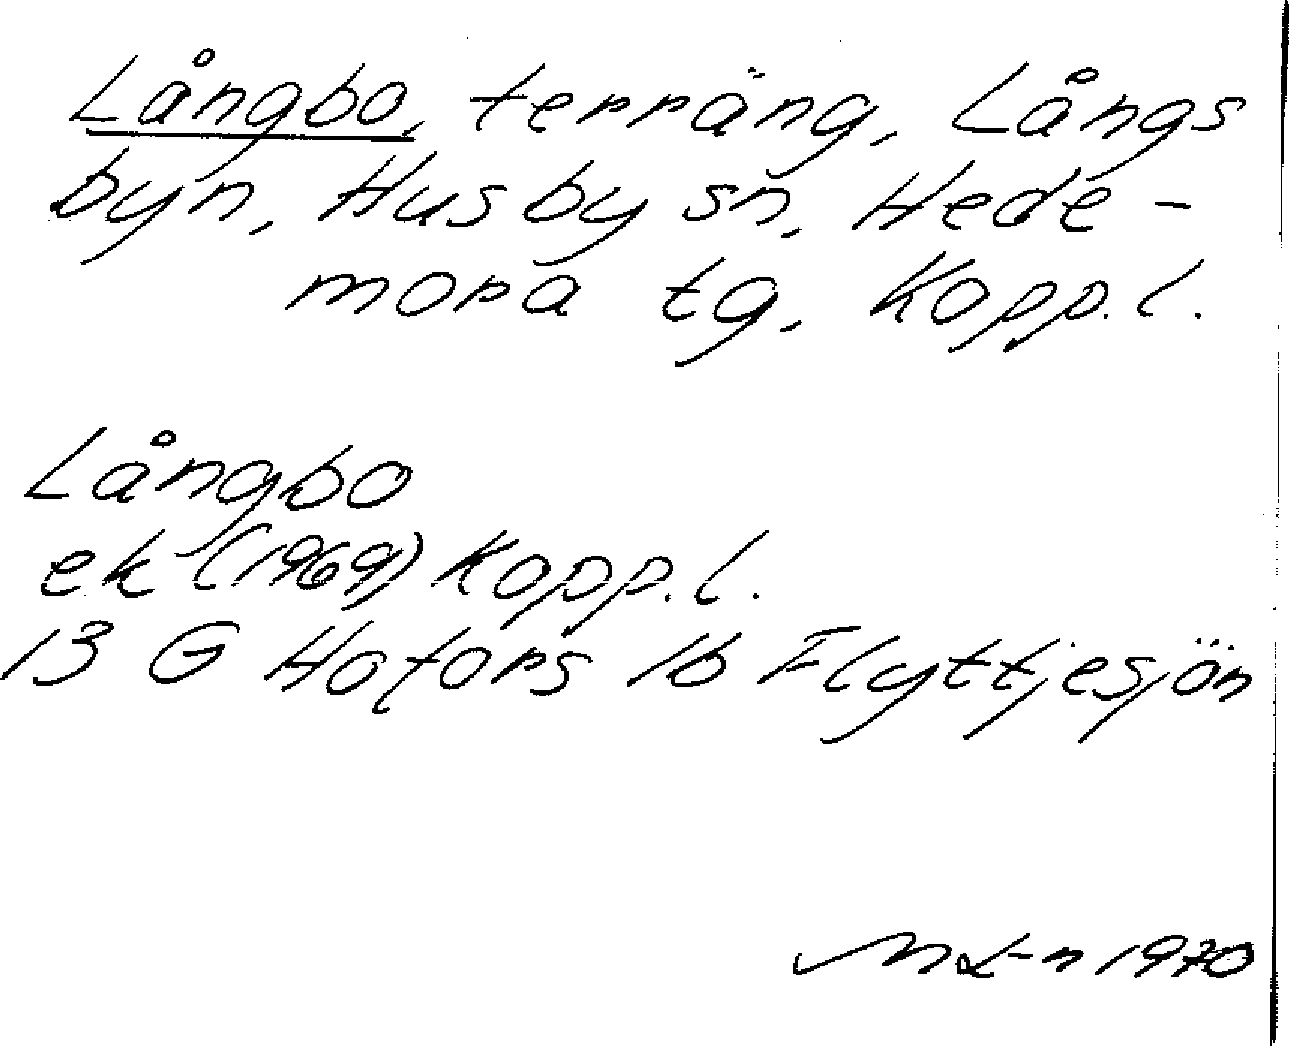 Långbo, terräng, Långs
byn, Husby sn, Hede-
mora tg, Kopp.l.
Långbo
ek (1969) Kopp.l.
13 G Hofors 1b Flyttjesjön
1970